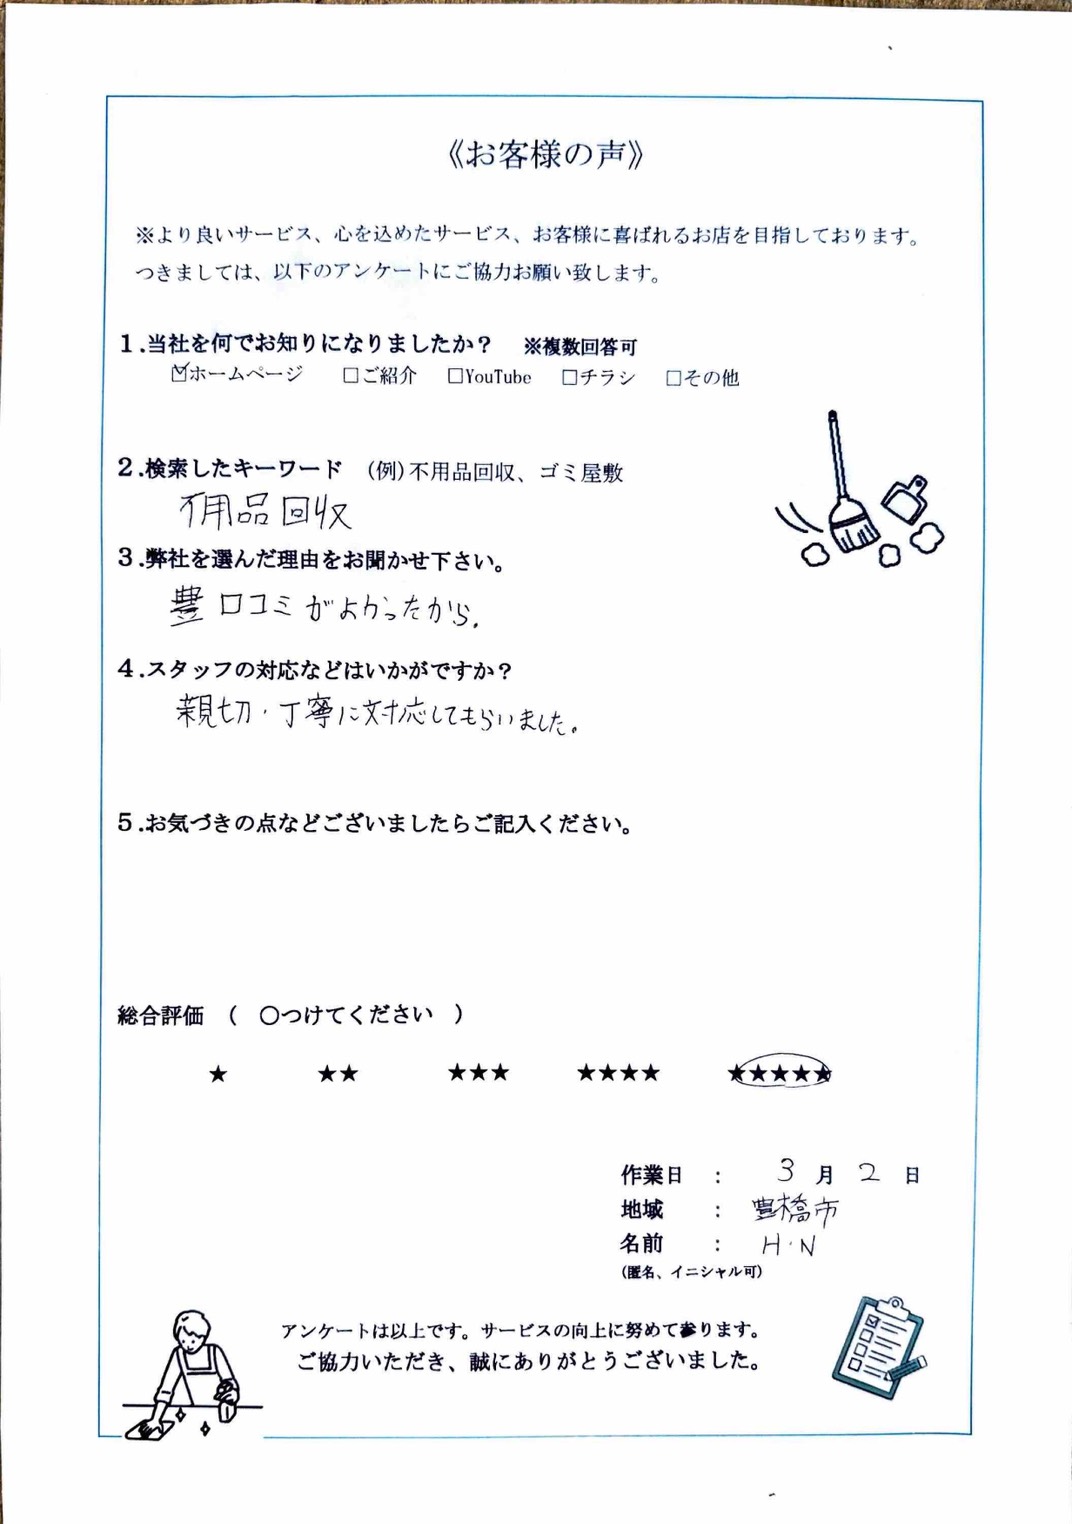 《お客様の声》
※より良いサービス、心を込めたサービス、お客様に喜ばれるお店を目指しております。
つきましては、以下のアンケートにご協力お願い致します。
１.当社を何でお知りになりましたか？　※複数回答可
☑ホームページ　□ご紹介　□YouTube　□チラシ　□その他
２.検索したキーワード　（例）不用品回収、ゴミ屋敷
不用品回収
３.弊社を選んだ理由をお聞かせ下さい。
豊 口コミがよかったから.
４.スタッフの対応などはいかがですか？
親切・丁寧に対応してもらいました。
５.お気づきの点などございましたらご記入ください。
総合評価　（　〇つけてください　）
★　★★　★★★　★★★★　★★★★★
作業日　：　3　月　2　日
地域　：　豊橋市
名前　：　H・N
（匿名、イニシャル可）
アンケートは以上です。サービスの向上に努めて参ります。
ご協力いただき、誠にありがとうございました。